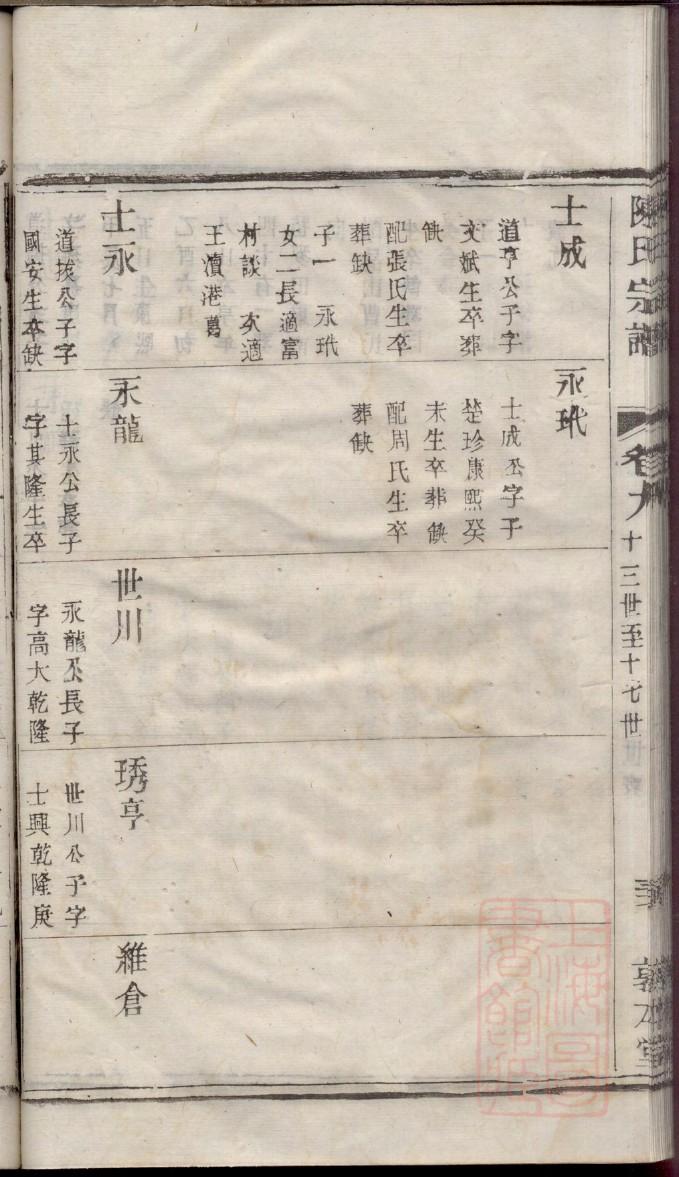 陳氏宗譜
卷九
十三世至十七世
敦本堂
士成
道亨公子字
文斌生卒葬
缺
配張氏生卒
葬缺
子一 永玳
女二長適富
村談 次適
王瀆港葛
士永
道拔公子字
國安生卒缺
永玳
士成公字子
楚珍康熙癸
未生卒葬缺
配周氏生卒
葬缺
永龍
士永公長子
字其隆生卒
世川
永龍公長子
字高大乾隆
琇亨
世川公子字
士興乾隆庚
維倉
上海圖書館藏